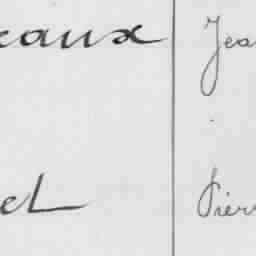 eaux Jea
el Pierr